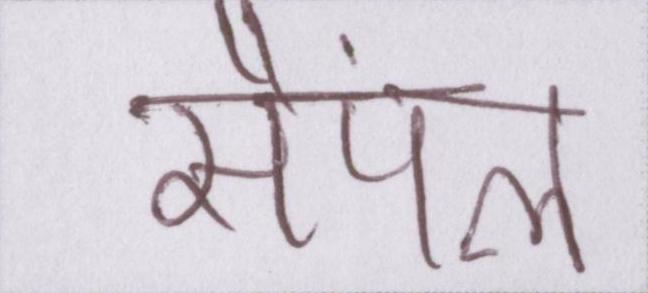 सैपंल